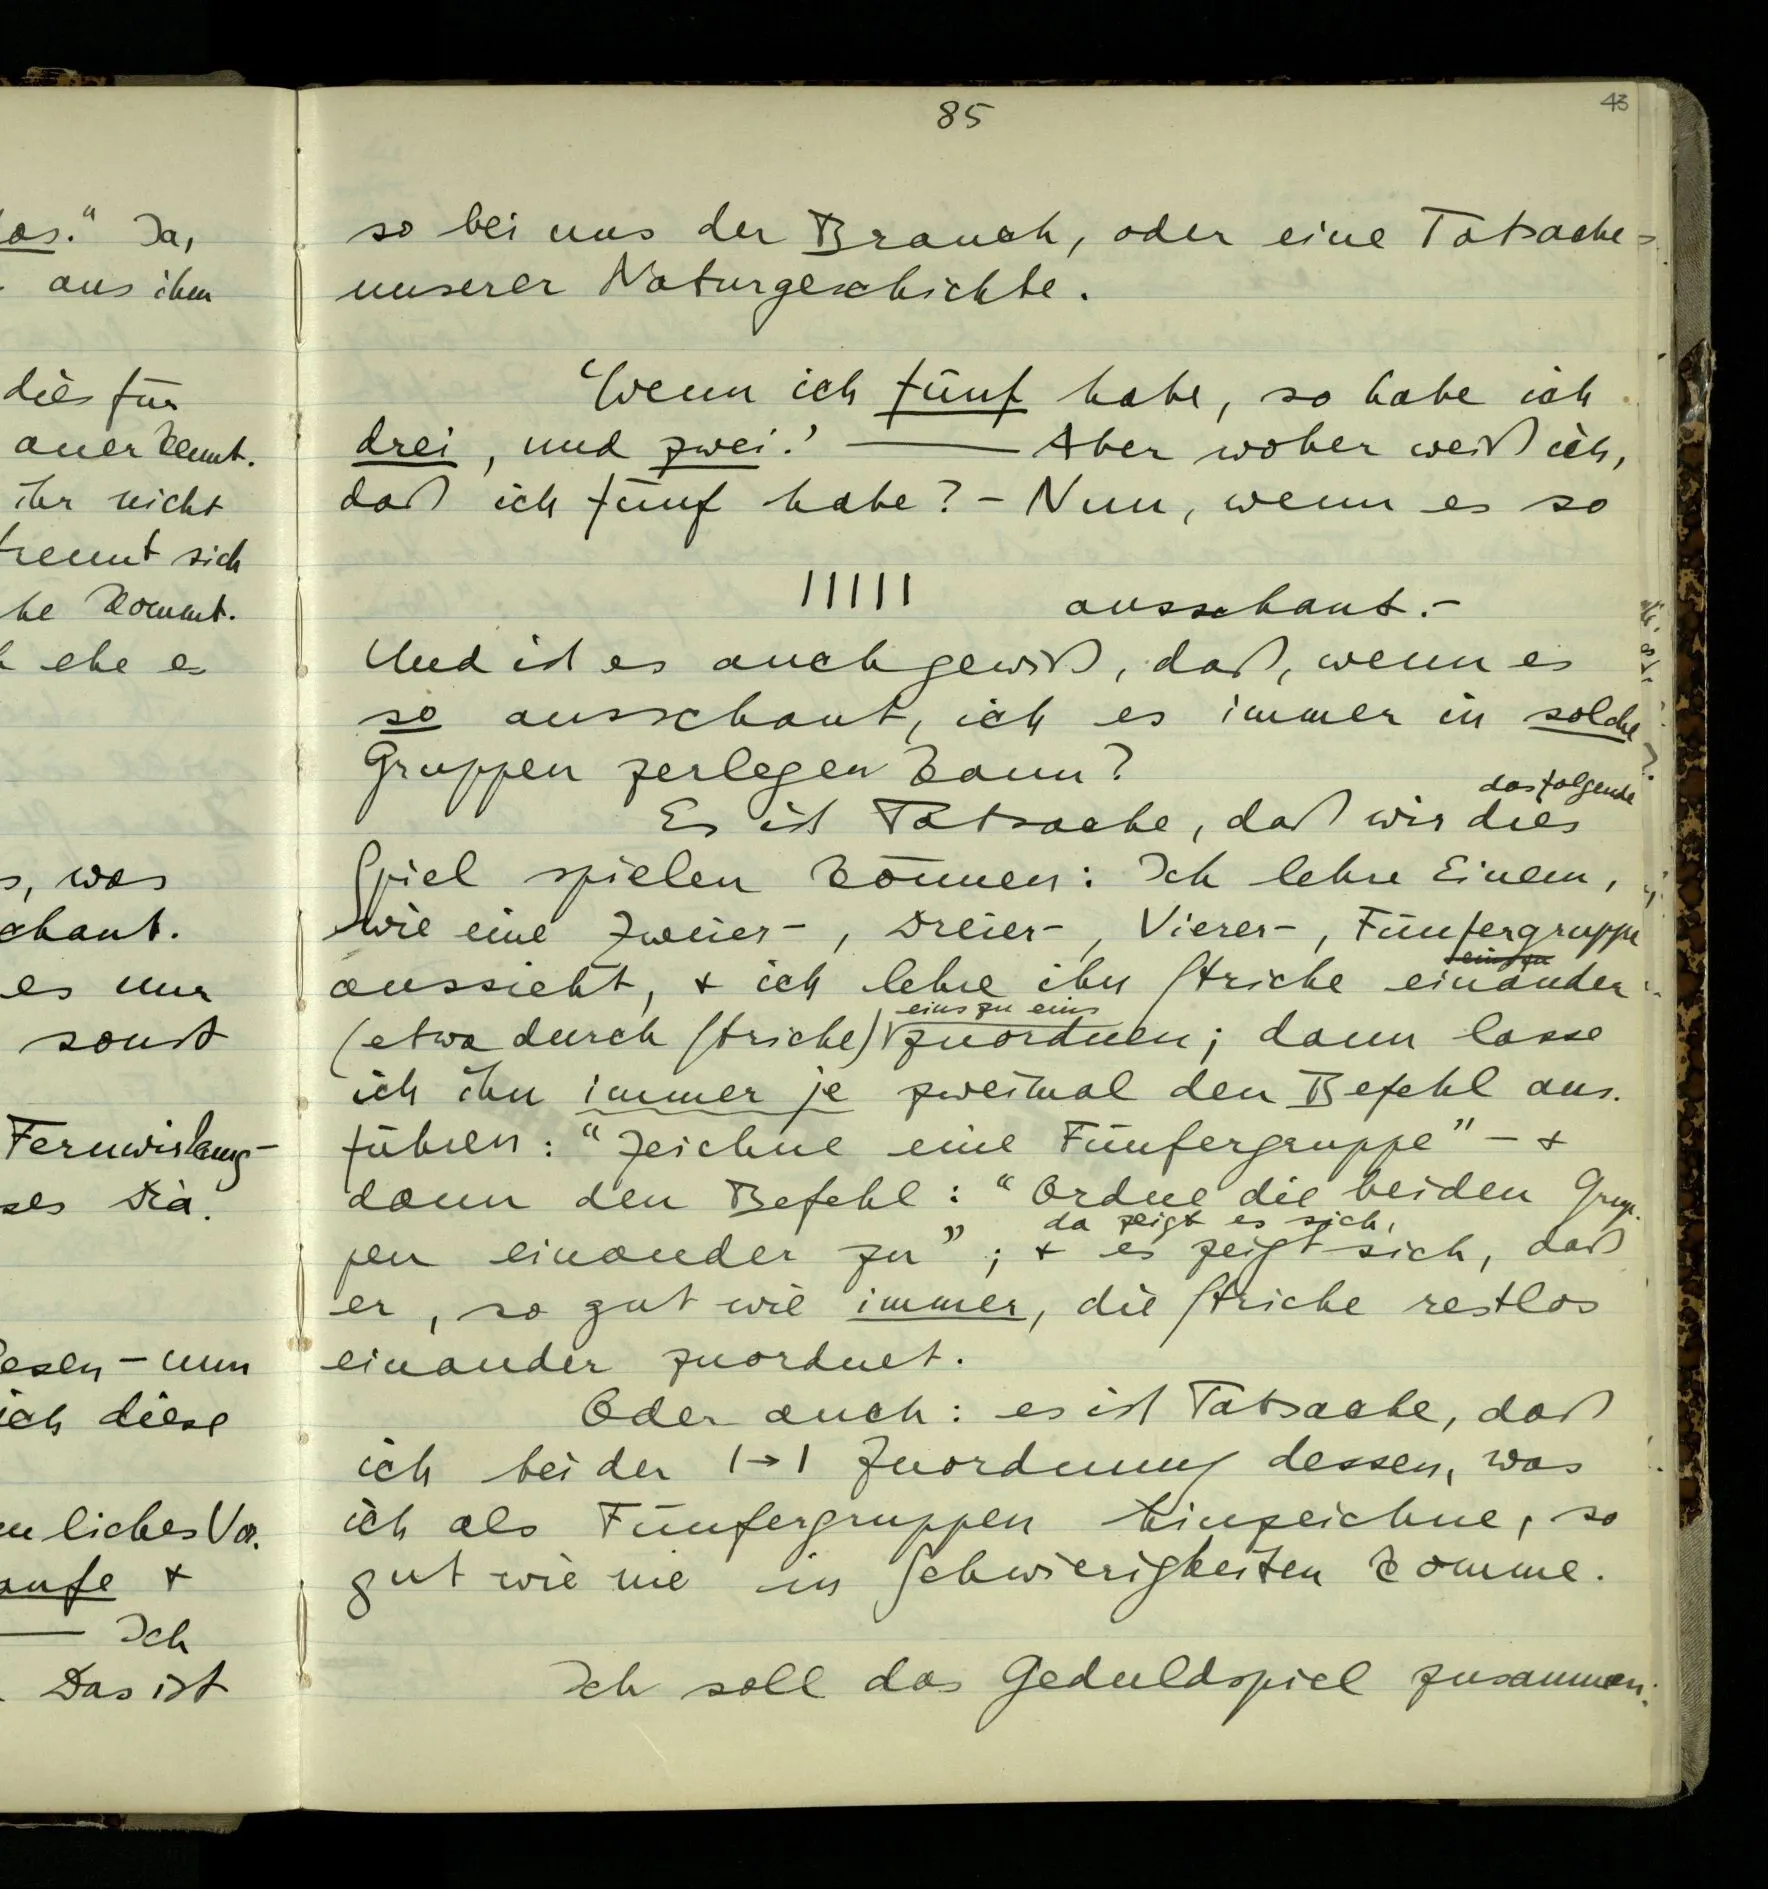 85
43
so bei uns der Brauch, oder eine Tatsache
unserer Naturgeschichte.
‘Wenn ich fünf habe, so habe ich
drei, und zwei.’ —— Aber woher weiß ich,
daß ich fünf habe? – Nun, wenn es so
||||| ausschaut. –
Und ist es auch gewiß, daß, wenn es
so ausschaut, ich es immer in solche
Gruppen zerlegen kann?
das folgende
Es ist Tatsache, daß wir dies
Spiel spielen können: Ich lehre Einem,
wie eine Zweier-, Dreier-, Vierer-, Fünfergruppe
aussieht, + ich lehre ihn Striche einander
eins zu eins
(etwa durch Striche) zuordnen; dann lasse
ich ihn immer je zweimal den Befehl aus-
führen: “Zeichne eine Fünfergruppe” – +
dann den Befehl: “Ordne die beiden Grup-
da zeigt es sich,
pen einander zu”; + es zeigt sich, daß
er, so gut wie immer, die Striche restlos
einander zuordnet.
Oder auch: es ist Tatsache, daß
ich bei der 1→1 Zuordnung dessen, was
ich als Fünfergruppen hinzeichne, so
gut wie nie in Schwierigkeiten komme.
Ich soll das Geduldspiel zusammen-
das.“ Ja,
aus ihm
dies für
anerkennt.
ihr nicht
trennt sich
he kommt.
ehe es
s, was
chaut.
es nur
sonst
Fernwirkung-
ses Dia.
esen – nun
ich diese
liches Vor-
aufe +
—— Ich
Das ist